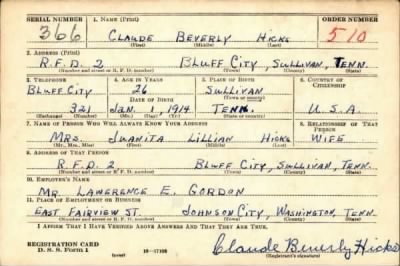 SERIAL NUMBER 1. NAME (Print) ORDER NUMBER
366 CLAUDE BEVERLY HICKS 510
(First) (Middle) (Last)
2. ADDRESS (Print)
R.F.D. 2 BLUFF CITY, SULLIVAN, TENN.
(Number and street or R. F. D. number) (Town) (County) (State)
3. TELEPHONE 4. AGE IN YEARS 5. PLACE OF BIRTH 6. COUNTRY OF CITIZENSHIP
BLUFF CITY 26 SULLIVAN
DATE OF BIRTH (Town or county)
321 JAN. 1, 1914 TENN. U.S.A.
(Mo.) (Day) (Yr.) (State or country)
7. NAME OF PERSON WHO WILL ALWAYS KNOW YOUR ADDRESS 8. RELATIONSHIP OF THAT PERSON
MRS. JUANITA LILLIAN HICKS WIFE
(Mr., Mrs., Miss) (First) (Middle) (Last)
9. ADDRESS OF THAT PERSON
R.F.D. 2 BLUFF CITY, SULLIVAN, TENN.
(Number and street or R. F. D. number) (Town) (County) (State)
10. EMPLOYER'S NAME
MR. LAWERENCE E. GORDON
11. PLACE OF EMPLOYMENT OR BUSINESS
EAST FAIRVIEW ST. JOHNSON CITY, WASHINGTON, TENN.
(Number and street or R. F. D. number) (Town) (County) (State)
I AFFIRM THAT I HAVE VERIFIED ABOVE ANSWERS AND THAT THEY ARE TRUE.
REGISTRATION CARD
D. S. S. Form 1 (over) 16—17105 Claude Beverly Hicks
(Registrant's signature)